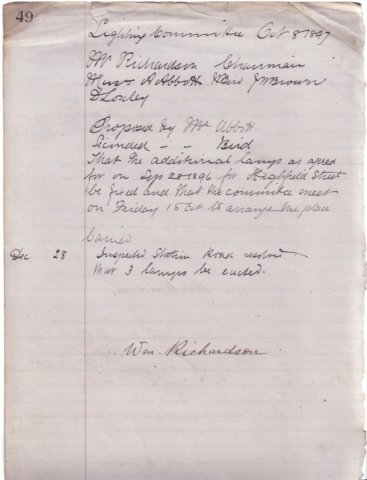 49
Lighting Committee Oct 8 1897
Mr Richardson Chairman
Messrs A Abbott Bird J Brown
D Loxley
Proposed by Mr Abbott
Seconded - - Bird
That the additional lamps as agreed
for on Sep 28 1896 for Highfield Street
be fixed and that the committee meet
on Friday 15 Oct to arrange the place
Carried
Dec 28 Inspected Station Road resolved
that 3 lamps be erected.
Wm. Richardson